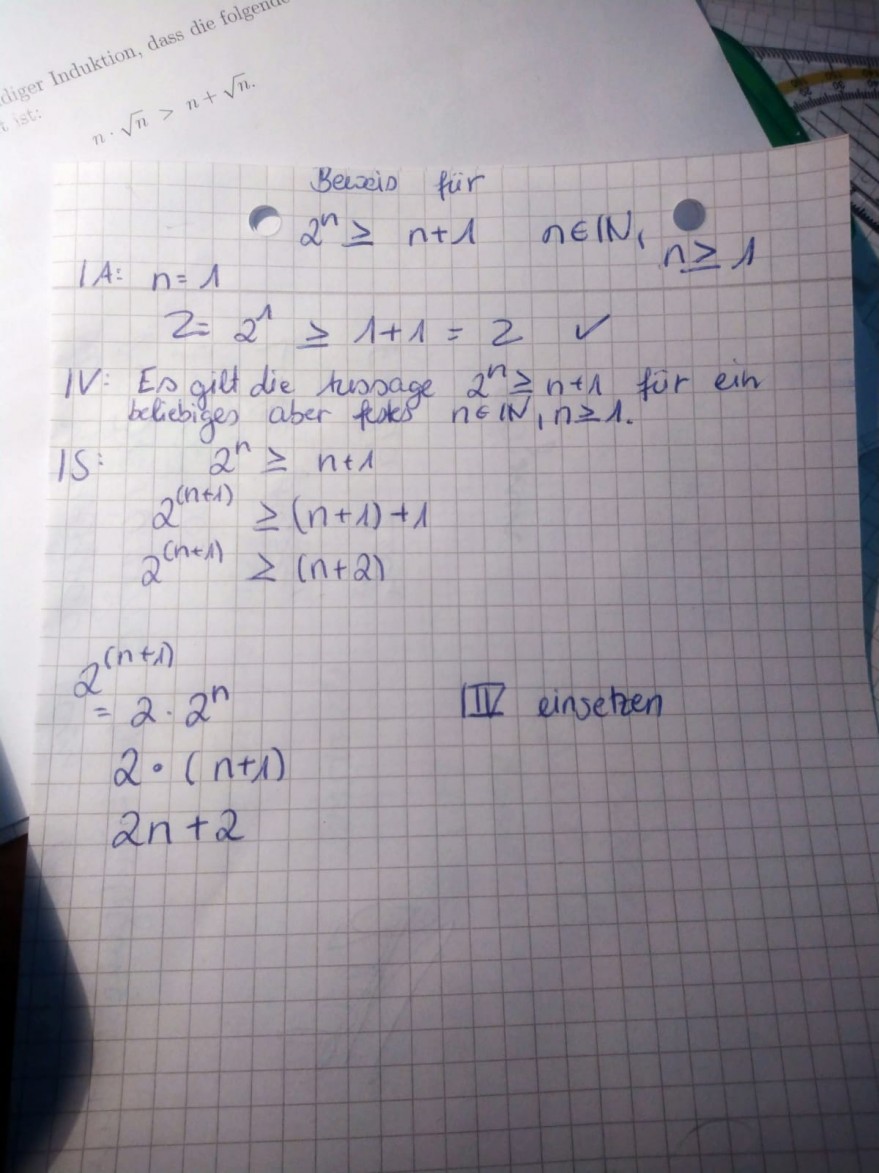 diger Induktion, dass die folgende
t ist:
n · √n > n + √n.
Beweis für
2ⁿ ≥ n+1 n∈ℕ,
n ≥ 1
IA: n = 1
2 = 2¹ ≥ 1+1 = 2 ✓
IV: Es gilt die Aussage 2ⁿ ≥ n+1 für ein
beliebiges aber festes n∈ℕ, n≥1.
IS: 2ⁿ ≥ n+1
2⁽ⁿ⁺¹⁾ ≥ (n+1)+1
2⁽ⁿ⁺¹⁾ ≥ (n+2)
2⁽ⁿ⁺¹⁾
= 2 · 2ⁿ | IV einsetzen
2 · (n+1)
2n + 2